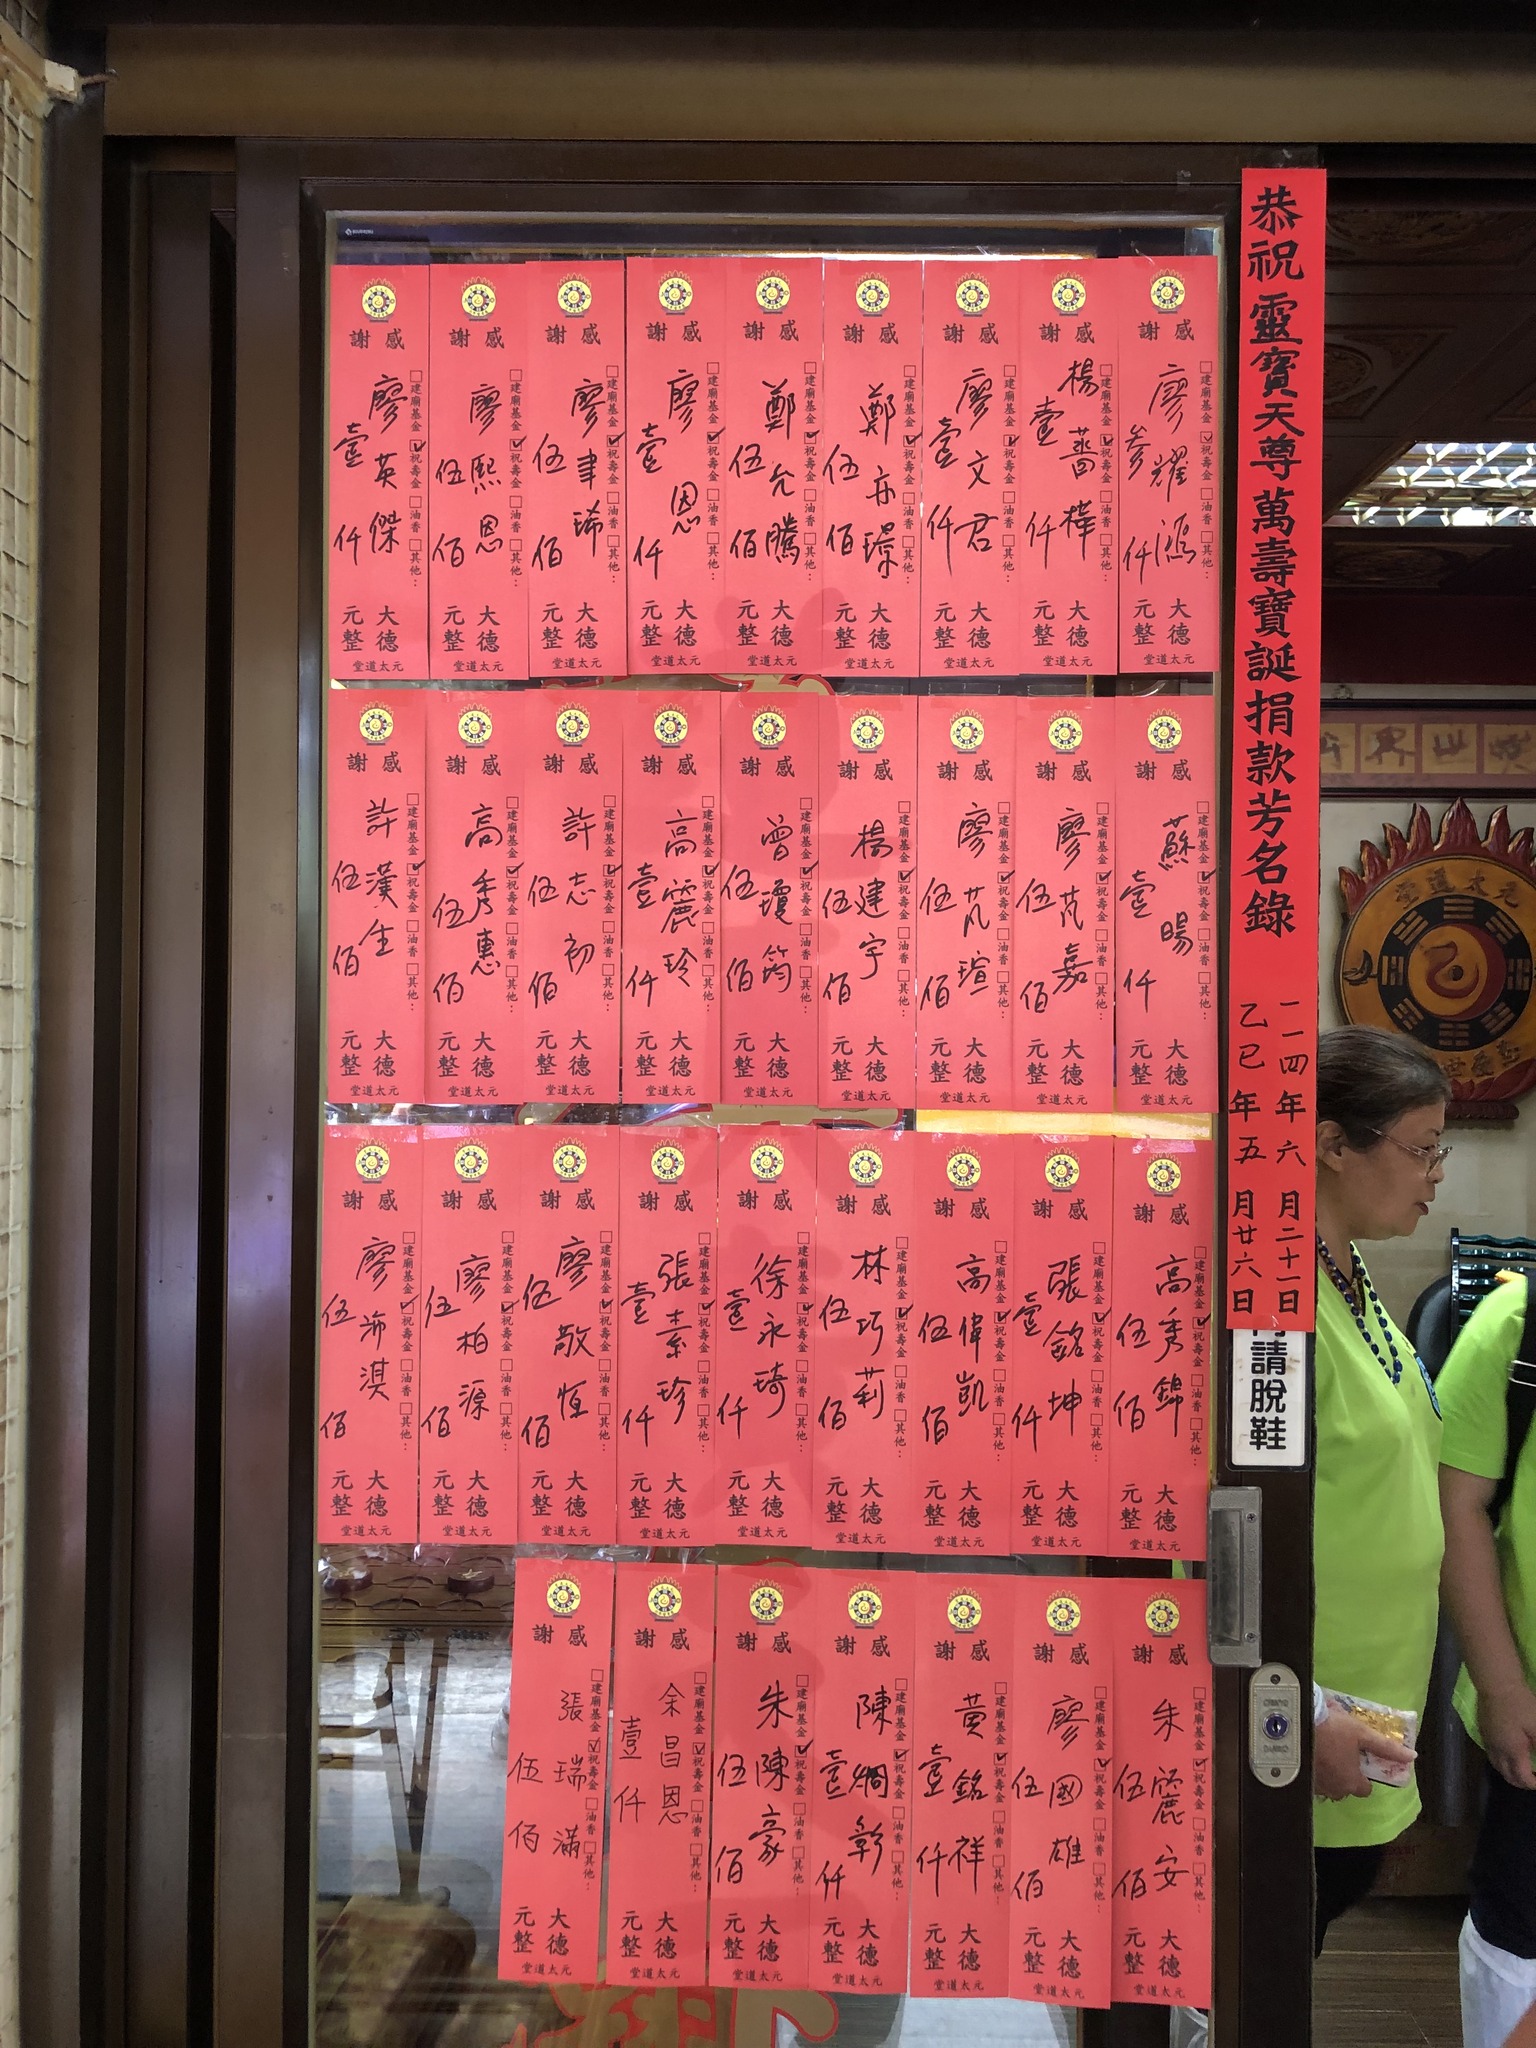 恭祝靈寶天尊萬壽寶誕捐款芳名錄
一一四年六月二十一日
乙巳年五月廿六日
請脫鞋
元太道堂
感謝
□建廟基金 ☑祝壽金 □油香 □其他：
廖耀鴻 大德
參仟 元整
元太道堂
感謝
□建廟基金 ☑祝壽金 □油香 □其他：
楊薔樺 大德
壹仟 元整
元太道堂
感謝
□建廟基金 ☑祝壽金 □油香 □其他：
廖文君 大德
壹仟 元整
元太道堂
感謝
□建廟基金 ☑祝壽金 □油香 □其他：
鄭亦璟 大德
伍佰 元整
元太道堂
感謝
□建廟基金 ☑祝壽金 □油香 □其他：
鄭允騰 大德
伍佰 元整
元太道堂
感謝
□建廟基金 ☑祝壽金 □油香 □其他：
廖恩 大德
壹仟 元整
元太道堂
感謝
□建廟基金 ☑祝壽金 □油香 □其他：
廖聿琋 大德
伍佰 元整
元太道堂
感謝
□建廟基金 ☑祝壽金 □油香 □其他：
廖熙恩 大德
伍佰 元整
元太道堂
感謝
□建廟基金 ☑祝壽金 □油香 □其他：
廖英傑 大德
壹仟 元整
元太道堂
感謝
□建廟基金 ☑祝壽金 □油香 □其他：
蘇暘 大德
壹仟 元整
元太道堂
感謝
□建廟基金 ☑祝壽金 □油香 □其他：
廖芃嘉 大德
伍佰 元整
元太道堂
感謝
□建廟基金 ☑祝壽金 □油香 □其他：
廖芃瑄 大德
伍佰 元整
元太道堂
感謝
□建廟基金 ☑祝壽金 □油香 □其他：
楊建宇 大德
伍佰 元整
元太道堂
感謝
□建廟基金 ☑祝壽金 □油香 □其他：
曾瓊筠 大德
伍佰 元整
元太道堂
感謝
□建廟基金 ☑祝壽金 □油香 □其他：
高麗玲 大德
壹仟 元整
元太道堂
感謝
□建廟基金 ☑祝壽金 □油香 □其他：
許志初 大德
伍佰 元整
元太道堂
感謝
□建廟基金 ☑祝壽金 □油香 □其他：
高秀惠 大德
伍佰 元整
元太道堂
感謝
□建廟基金 ☑祝壽金 □油香 □其他：
許漢生 大德
伍佰 元整
元太道堂
感謝
□建廟基金 ☑祝壽金 □油香 □其他：
高秀錦 大德
伍佰 元整
元太道堂
感謝
□建廟基金 ☑祝壽金 □油香 □其他：
張銘坤 大德
壹仟 元整
元太道堂
感謝
□建廟基金 ☑祝壽金 □油香 □其他：
高偉凱 大德
伍佰 元整
元太道堂
感謝
□建廟基金 ☑祝壽金 □油香 □其他：
林巧莉 大德
伍佰 元整
元太道堂
感謝
□建廟基金 ☑祝壽金 □油香 □其他：
徐永琦 大德
壹仟 元整
元太道堂
感謝
□建廟基金 ☑祝壽金 □油香 □其他：
張素珍 大德
壹仟 元整
元太道堂
感謝
□建廟基金 ☑祝壽金 □油香 □其他：
廖敬恆 大德
伍佰 元整
元太道堂
感謝
□建廟基金 ☑祝壽金 □油香 □其他：
廖柏源 大德
伍佰 元整
元太道堂
感謝
□建廟基金 ☑祝壽金 □油香 □其他：
廖沛淇 大德
伍佰 元整
元太道堂
感謝
□建廟基金 ☑祝壽金 □油香 □其他：
朱麗安 大德
伍佰 元整
元太道堂
感謝
□建廟基金 ☑祝壽金 □油香 □其他：
廖國雄 大德
伍佰 元整
元太道堂
感謝
□建廟基金 ☑祝壽金 □油香 □其他：
黃銘祥 大德
壹仟 元整
元太道堂
感謝
□建廟基金 ☑祝壽金 □油香 □其他：
陳炯彰 大德
壹仟 元整
元太道堂
感謝
□建廟基金 ☑祝壽金 □油香 □其他：
朱陳豪 大德
伍佰 元整
元太道堂
感謝
□建廟基金 ☑祝壽金 □油香 □其他：
余昌恩 大德
壹仟 元整
元太道堂
感謝
□建廟基金 ☑祝壽金 □油香 □其他：
張瑞滿 大德
伍佰 元整
元太道堂